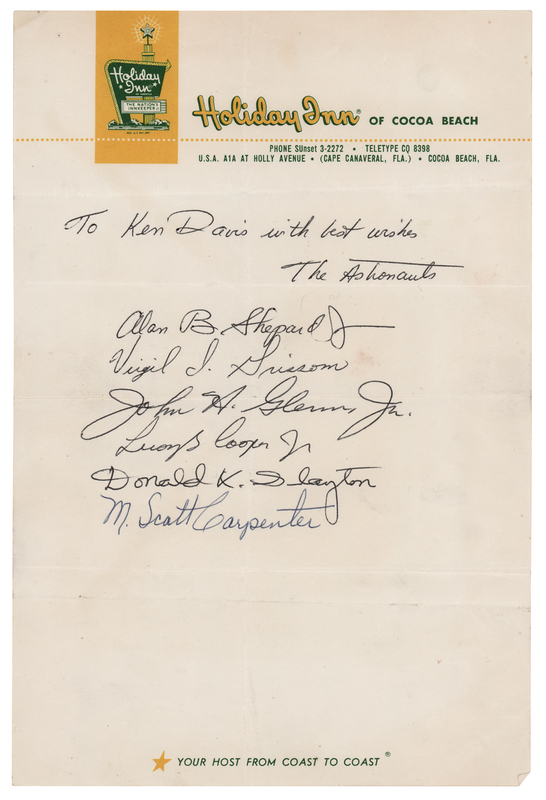 Holiday Inn
THE NATION'S
INNKEEPER
Holiday Inn® OF COCOA BEACH
PHONE SUnset 3-2272 • TELETYPE CQ 8398
U.S.A. A1A AT HOLLY AVENUE • (CAPE CANAVERAL, FLA.) • COCOA BEACH, FLA.
To Ken Davis with best wishes
The Astronauts
Alan B. Shepard Jr
Virgil I. Grissom
John H. Glenn, Jr.
Leroy G Cooper Jr
Donald K. Slayton
M. Scott Carpenter
YOUR HOST FROM COAST TO COAST ®